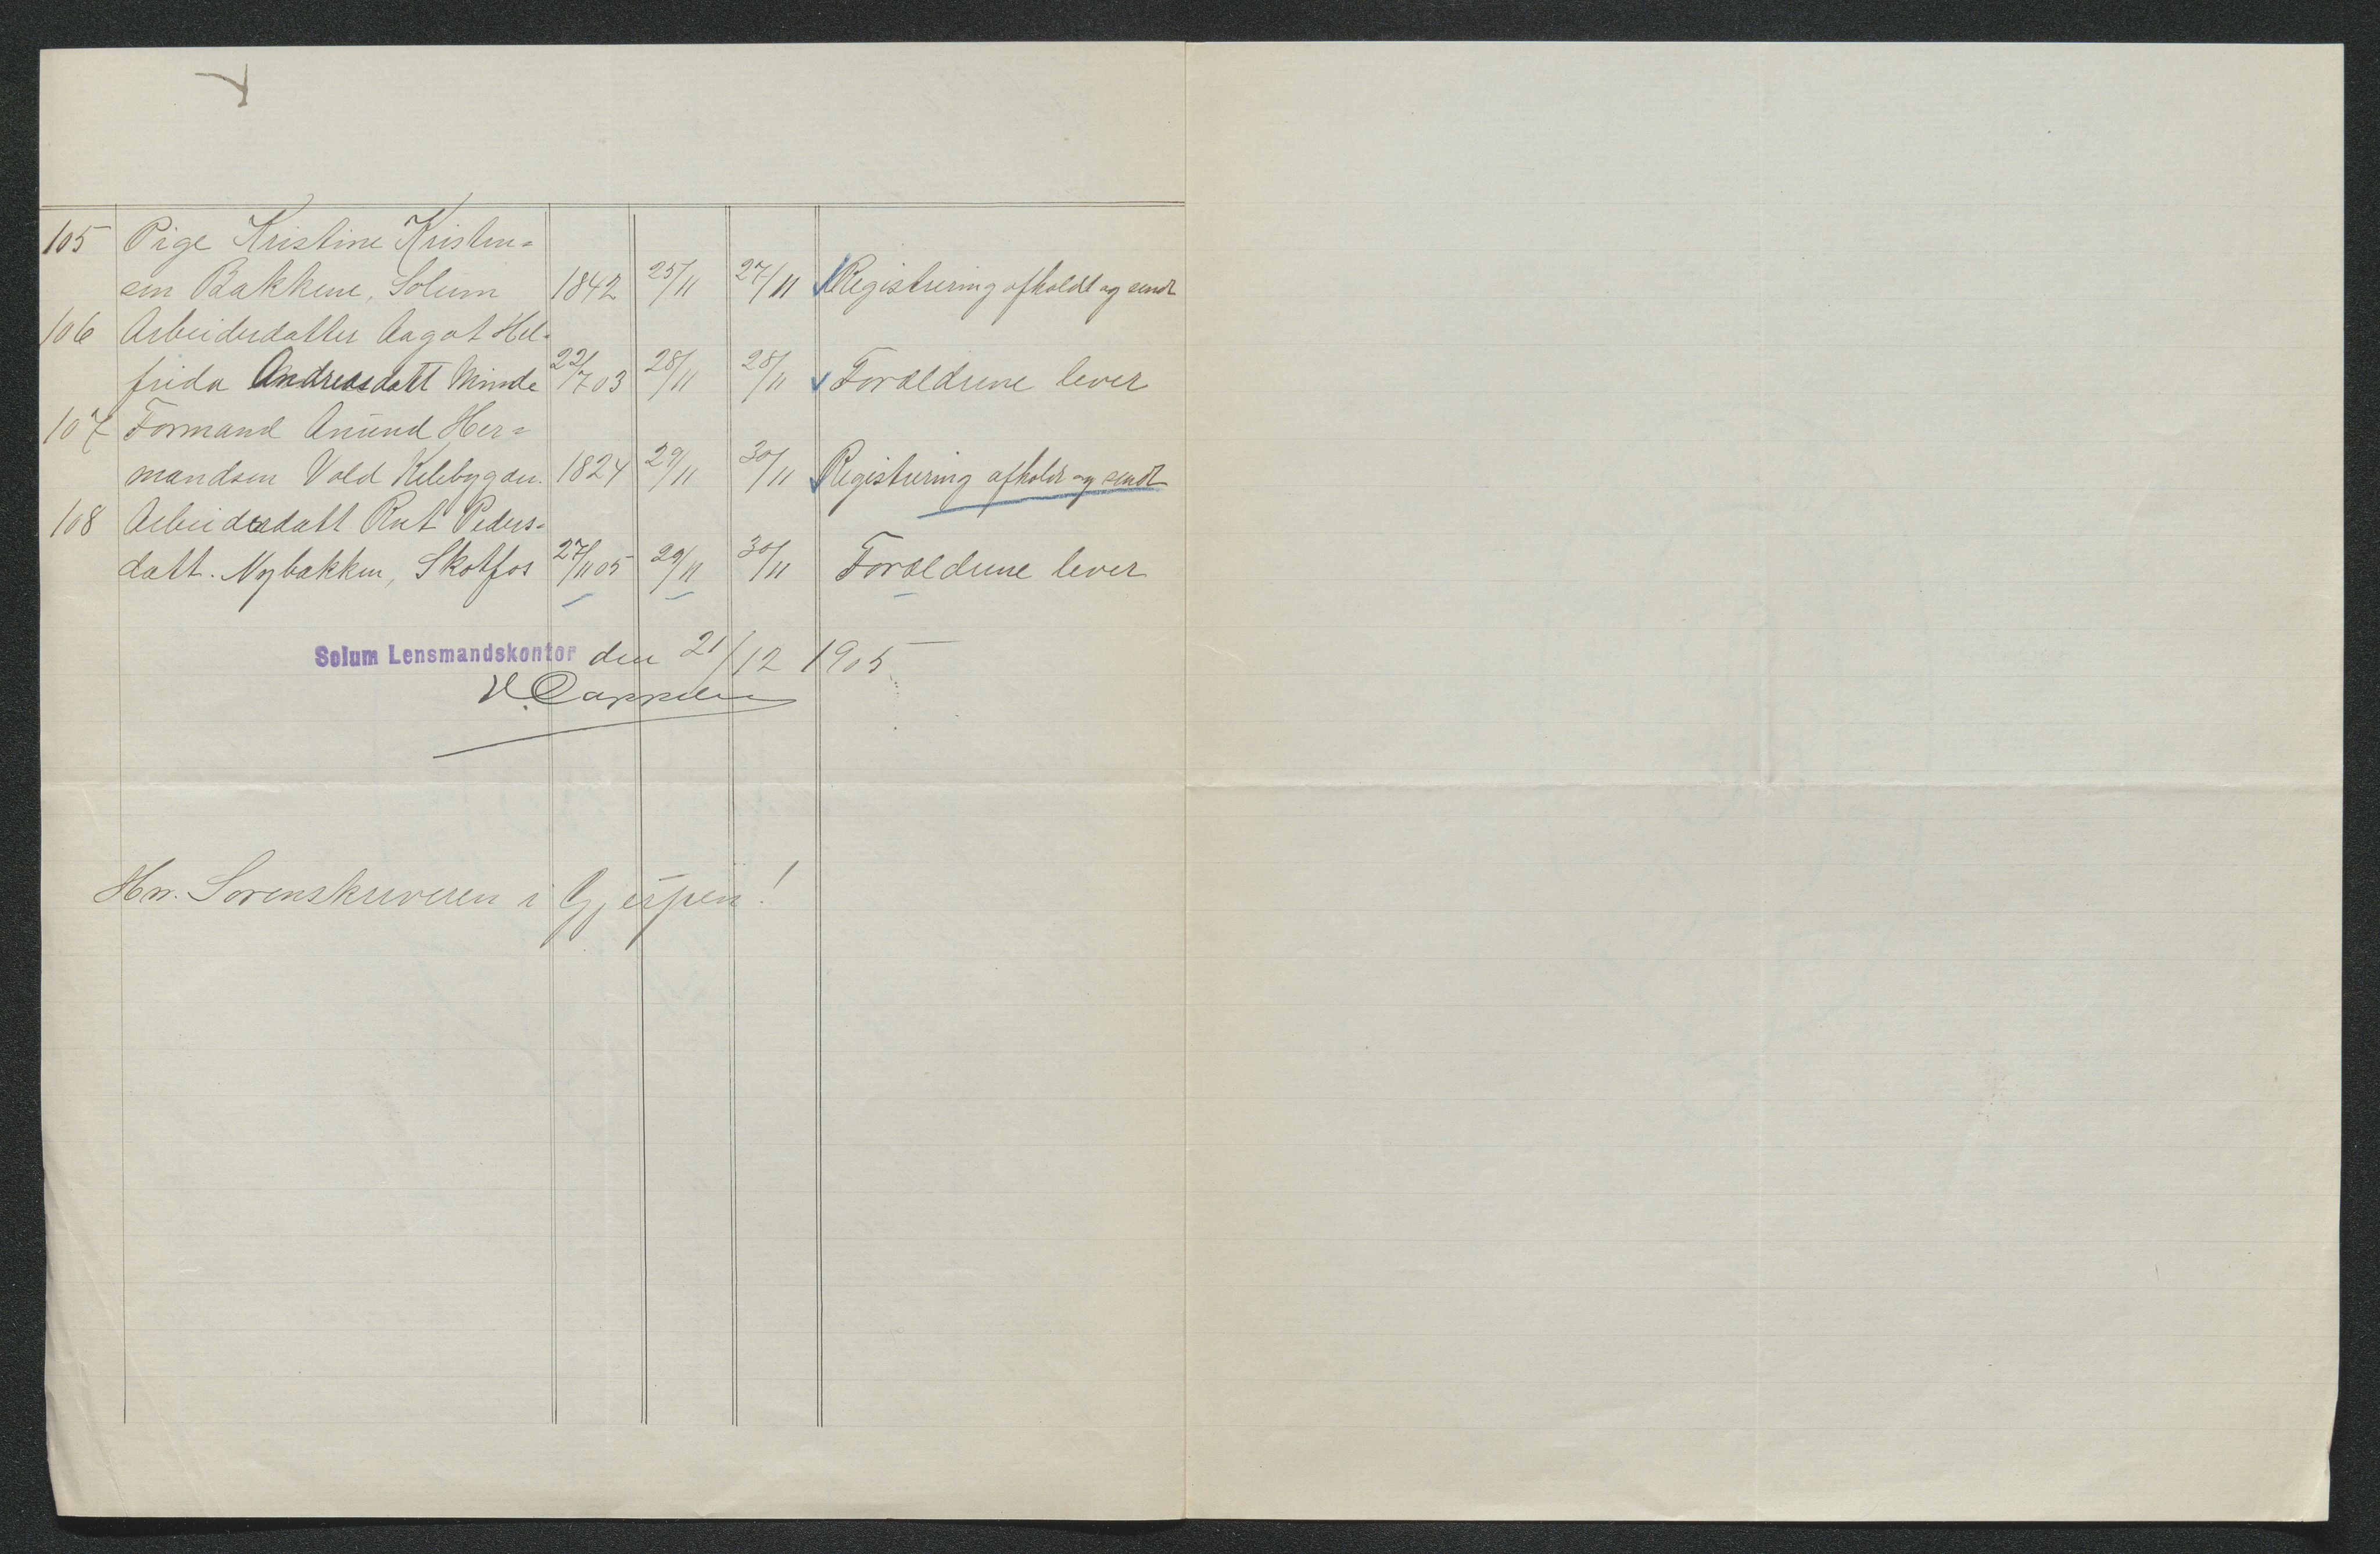 105 Pige Kristine Kristen=
sen Bakkene, Solum 1842 25/11 27/11 Registrering afholdt og sendt
106 Arbeiderdatter Aagot Hel=
frida Andreasdatt Minde 22/7 03 28/11 28/11 Forældrene lever
107 Formand Anund Her=
mandsen Vold Kilebygden. 1824 29/11 30/11 Registrering afholdt og sendt
108 Arbeidesdatt Rut Peders=
datt. Nybakken, Skotfos 27/11 05 29/11 30/11 Forældrene lever
Solum Lensmandskontor den 21/12 1905
Cappelen
Hr. Sorenskriveren i Gjerpen!